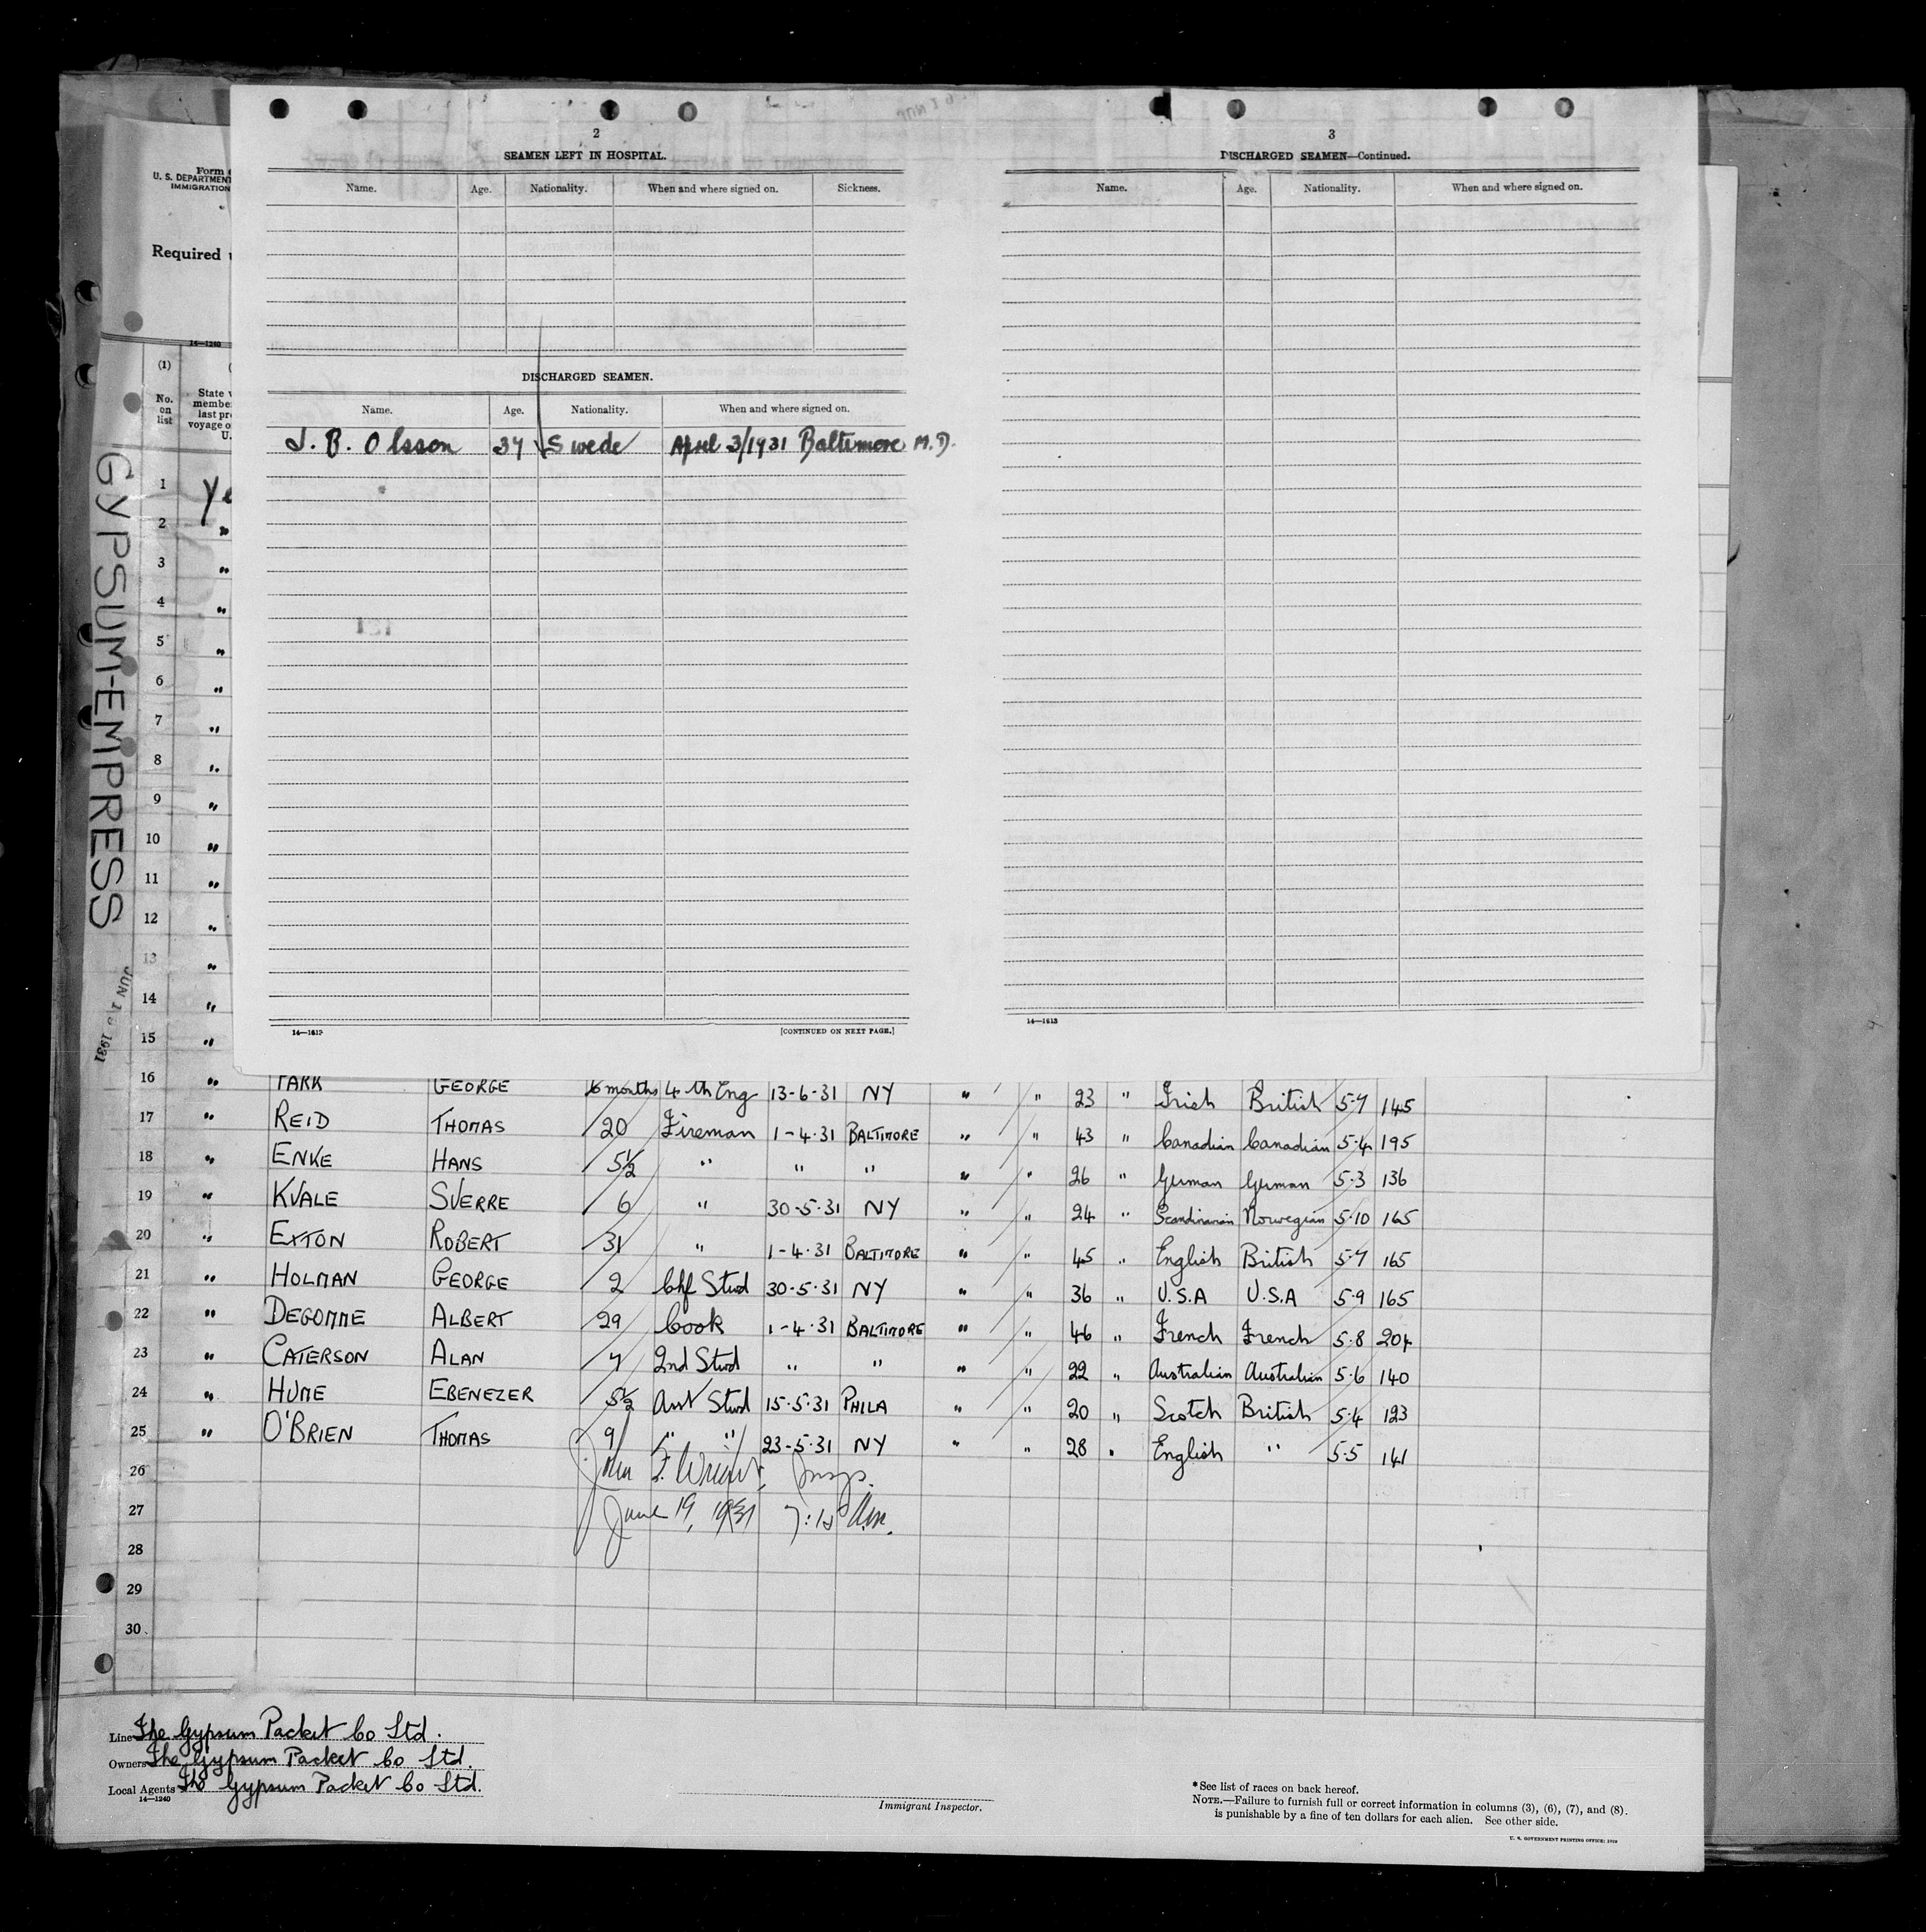 2
SEAMEN LEFT IN HOSPITAL.
Name. Age. Nationality. When and where signed on. Sickness.
DISCHARGED SEAMEN.
Name. Age. Nationality. When and where signed on.
J. B. Olsson 37 Swede April 3/1931 Baltimore M.D.
14—1613 [CONTINUED ON NEXT PAGE.]
3
DISCHARGED SEAMEN—Continued.
Name. Age. Nationality. When and where signed on.
14—1613
Form
U. S. DEPARTMENT
IMMIGRATION
Required
14—1240
(1)
No. on list
State
member
last pre
voyage o
U.
GYPSUM-EMPRESS
JUN 1 1931
1 Ye
2 "
3 "
4 "
5 "
6 "
7 "
8 "
9 "
10 "
11 "
12 "
13 "
14 "
15 "
16 " GEORGE 6 months 4th Eng 13-6-31 NY " " 23 " Irish British 5·7 145
17 " REID THOMAS 20 Fireman 1-4-31 BALTIMORE " " 43 " Canadian Canadian 5·4 195
18 " ENKE HANS 5½ " " " " " 26 " German German 5·3 136
19 " KVALE SVERRE 6 " 30-5-31 NY " " 24 " Scandinavian Norwegian 5·10 165
20 " EXTON ROBERT 31 " 1-4-31 BALTIMORE " " 45 " English British 5·7 165
21 " HOLMAN GEORGE 2 Chf Stwd 30-5-31 NY " " 36 " U.S.A U.S.A 5·9 165
22 " DEGOMME ALBERT 29 Cook 1-4-31 BALTIMORE " " 46 " French French 5·8 204
23 " CATERSON ALAN 7 2nd Stwd " " " " 22 " Australian Australian 5·6 140
24 " HUME EBENEZER 5½ Asst Stwd 15-5-31 PHILA " " 20 " Scotch British 5·4 123
25 " O'BRIEN THOMAS 9 " " 23-5-31 NY " " 28 " English " 5·5 141
26 John F.
27 June 19, 1931 7:15 Am.
28
29
30
Line The Gypsum Packet Co Ltd.
Owners The Gypsum Packet Co Ltd.
Local Agents The Gypsum Packet Co Ltd.
14—1240
Immigrant Inspector.
*See list of races on back hereof.
NOTE.—Failure to furnish full or correct information in columns (3), (6), (7), and (8).
is punishable by a fine of ten dollars for each alien. See other side.
U. S. GOVERNMENT PRINTING OFFICE: